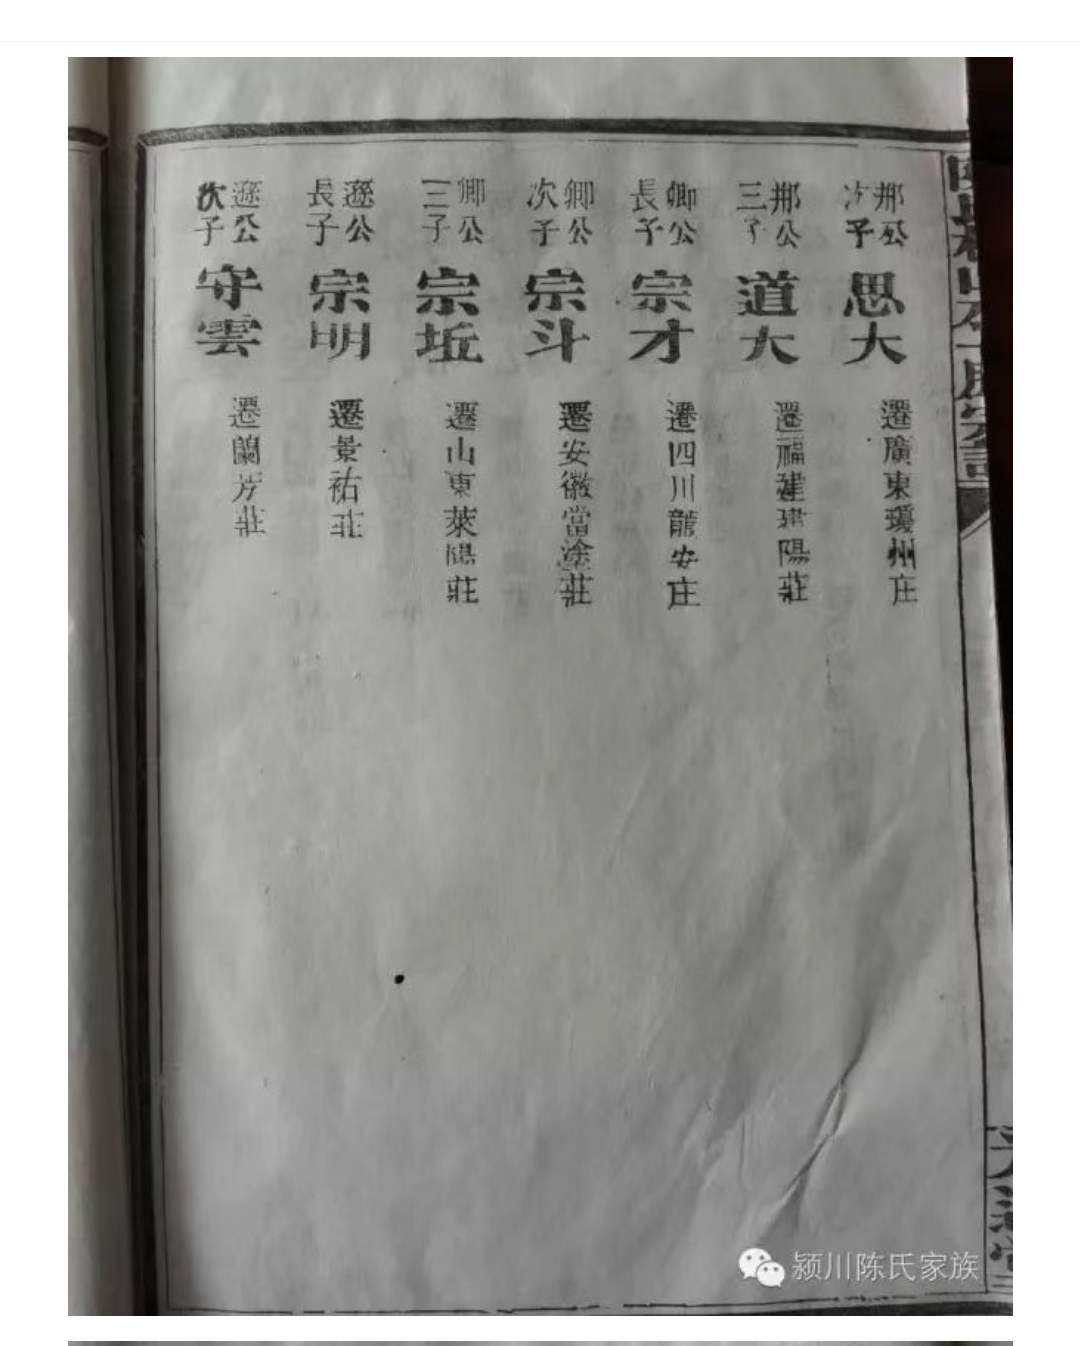 邢公次子 思大 遷廣東瓊州庄
邢公三子 道大 遷福建建陽莊
卿公長子 宗才 遷四川龍安庄
卿公次子 宗斗 遷安徽當塗莊
卿公三子 宗坵 遷山東萊陽莊
遜公長子 宗明 遷景祐莊
遜公次子 守雲 遷蘭芳莊
颍川陈氏家族